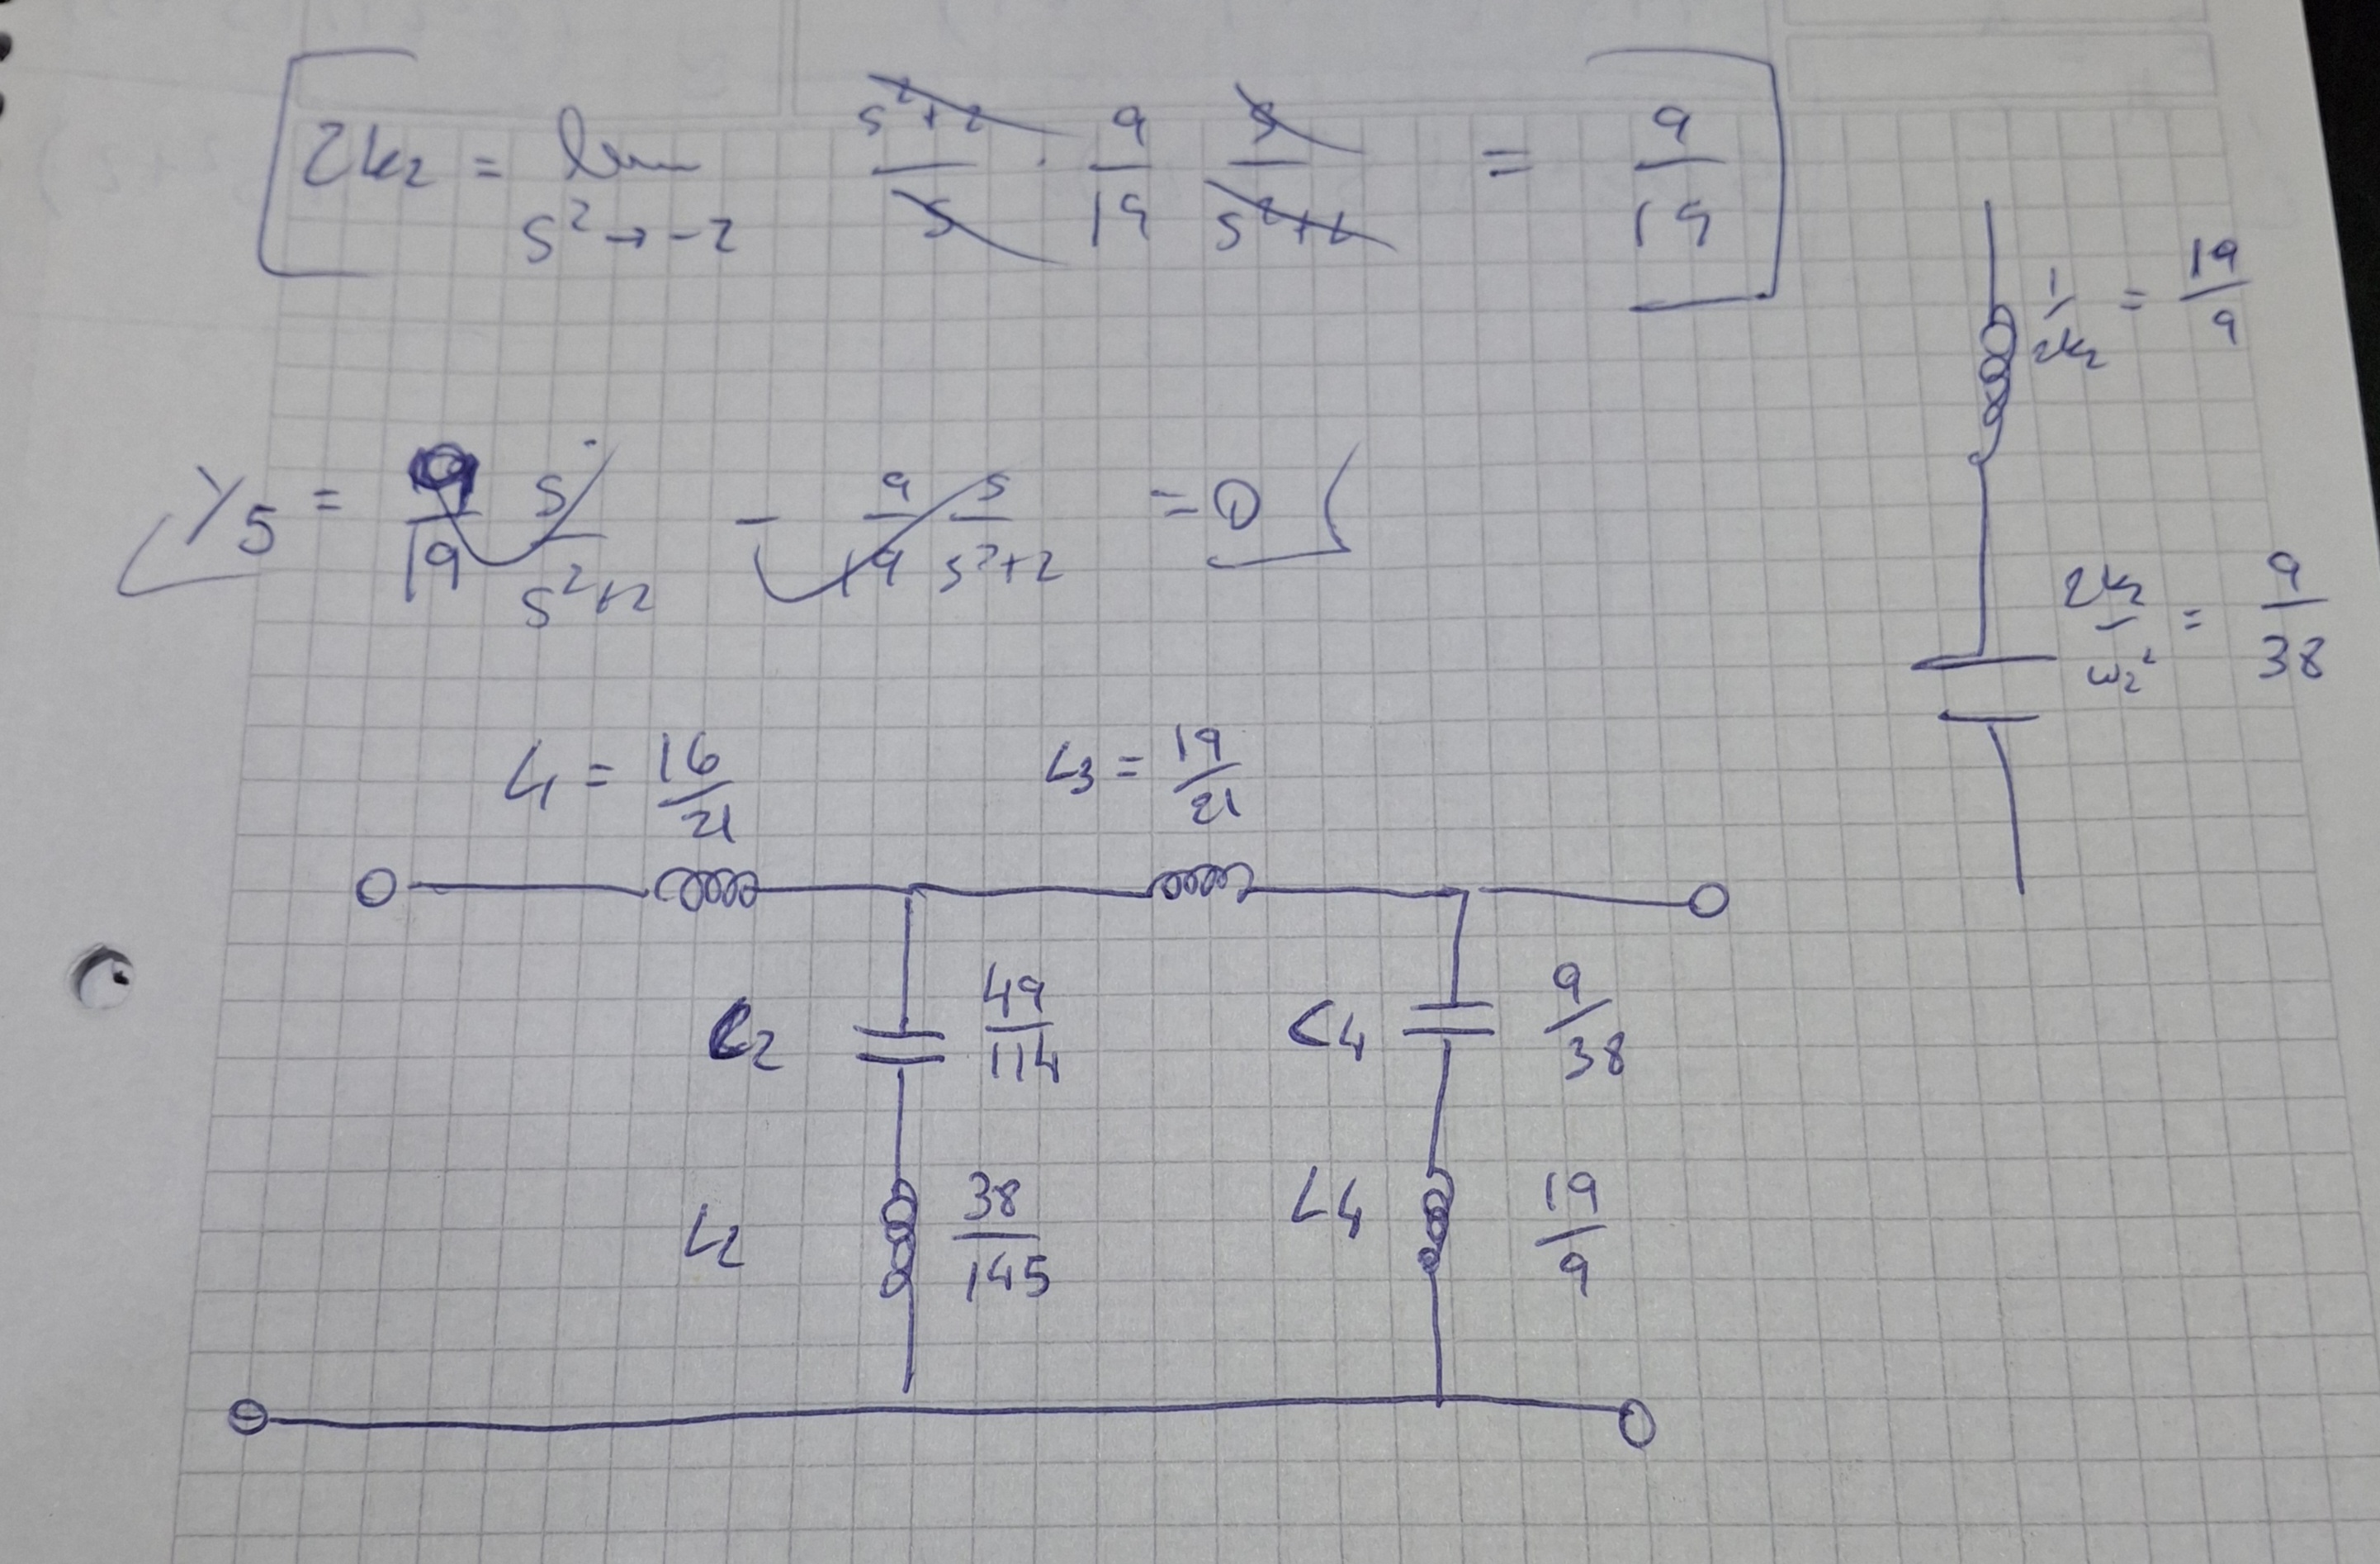 2k₂ = lim s²→-2 s²+2/s · 9/19 s/s²+2 = 9/19
1/2k₂ = 19/9
Y₅ = 9/19 s/s²+2 - 9/19 s/s²+2 = 0
2k₂/ω₂² = 9/38
L₁ = 16/21 L₃ = 19/21
C₂ 49/114 C₄ 9/38
L₂ 38/145 L₄ 19/9